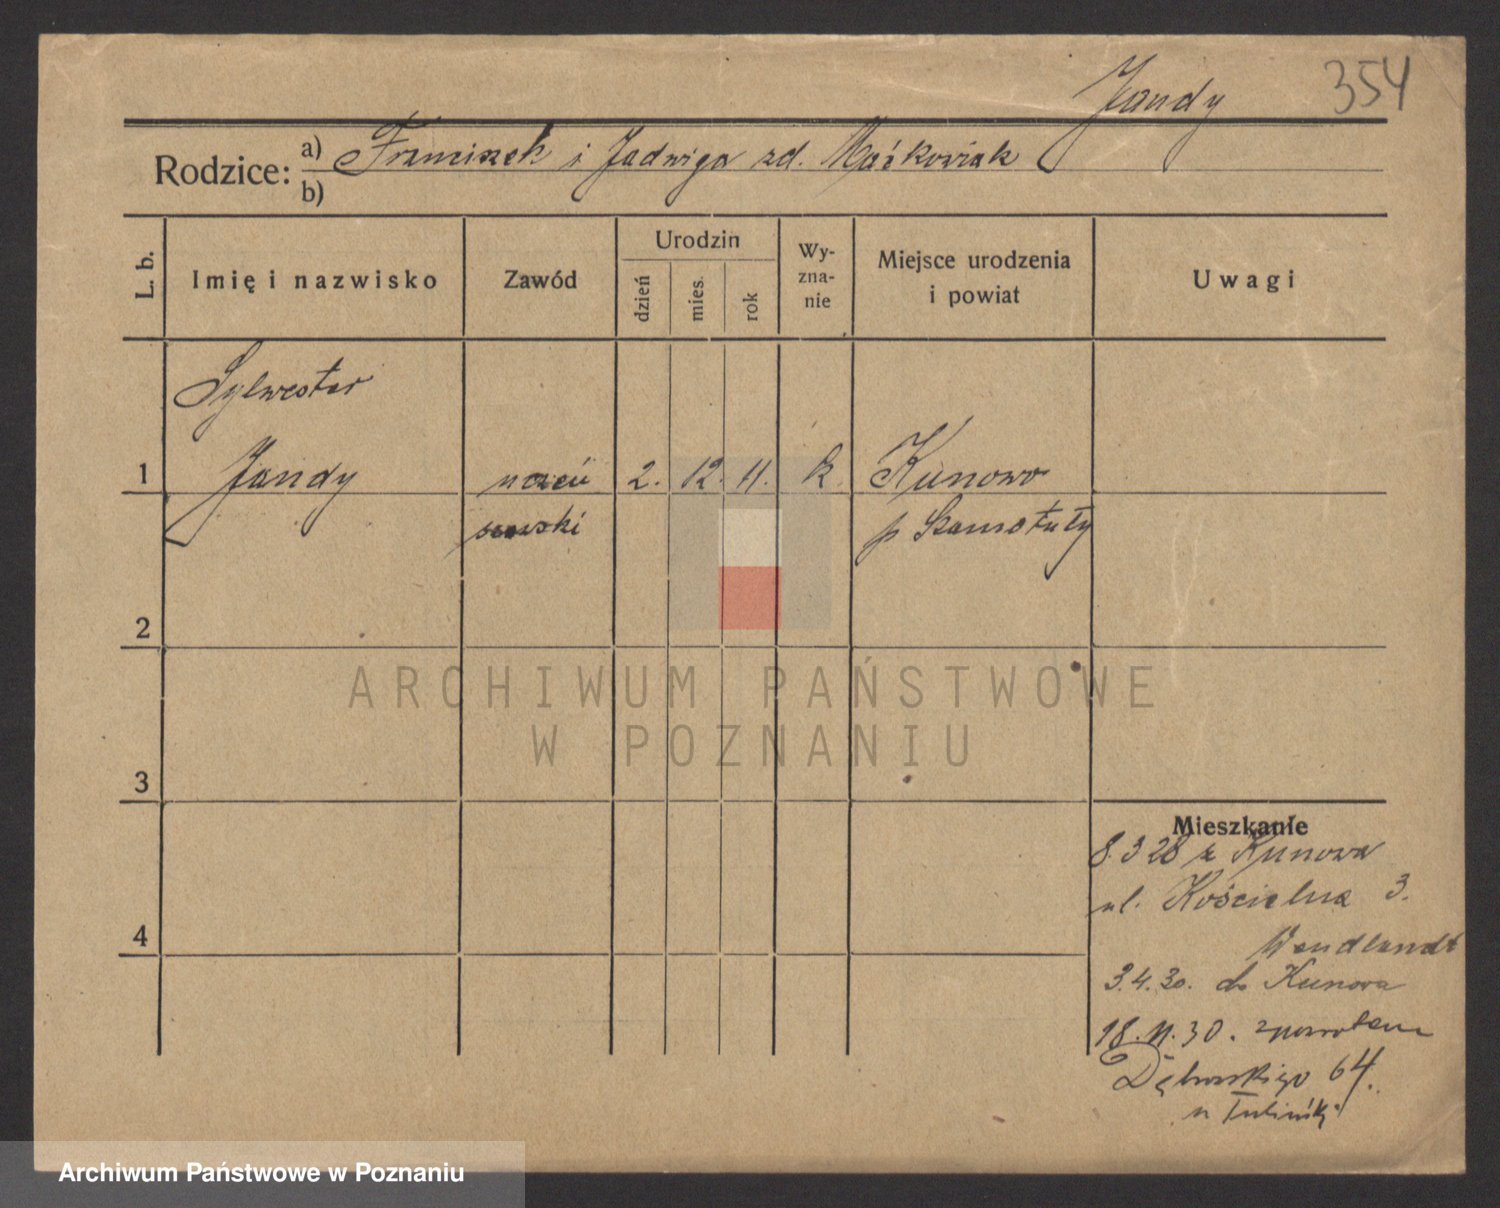 Jandy 354
Rodzice: a) Franciszek i Jadwiga zd. Maćkowiak
b)
L. b.
Imię i nazwisko
Zawód
Urodzin
dzień
mies.
rok
Wy-
zna-
nie
Miejsce urodzenia
i powiat
Uwagi
Sylwester
1 Jandy uczeń 2. 12. 11. k. Kunowo
p Szamotuły
2
3
4
Mieszkanie
8.3 28 z Kunowa
ul. Kościelna 3.
Wendlandt
3.4.30. do Kunowa
18.11.30. zpowrotem
Dąbrowskiego 64.
u
ARCHIWUM PAŃSTWOWE
W POZNANIU
Archiwum Państwowe w Poznaniu